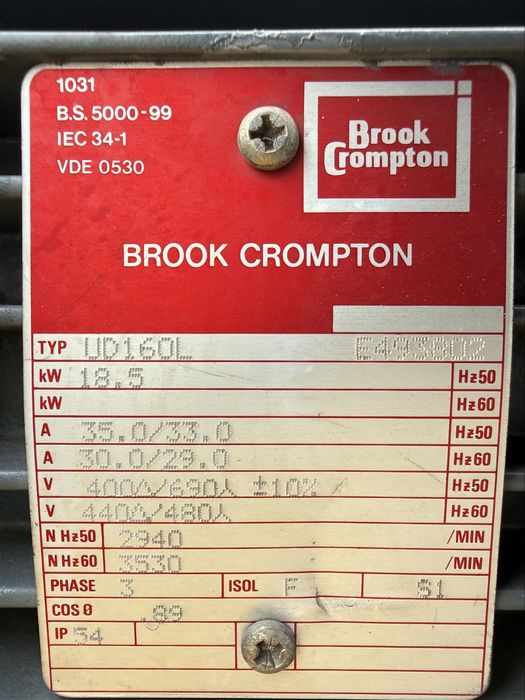 1031
B.S. 5000-99
IEC 34-1
VDE 0530
Brook
Crompton
BROOK CROMPTON
TYP UD160L E493802
kW 18.5 Hz50
kW Hz60
A 35.0/33.0 Hz50
A 30.0/29.0 Hz60
V 400Δ/690⅄ ±10% Hz50
V 440Δ/480⅄ Hz60
N Hz50 2940 /MIN
N Hz60 3530 /MIN
PHASE 3 ISOL F S1
COS Ø .89
IP 54